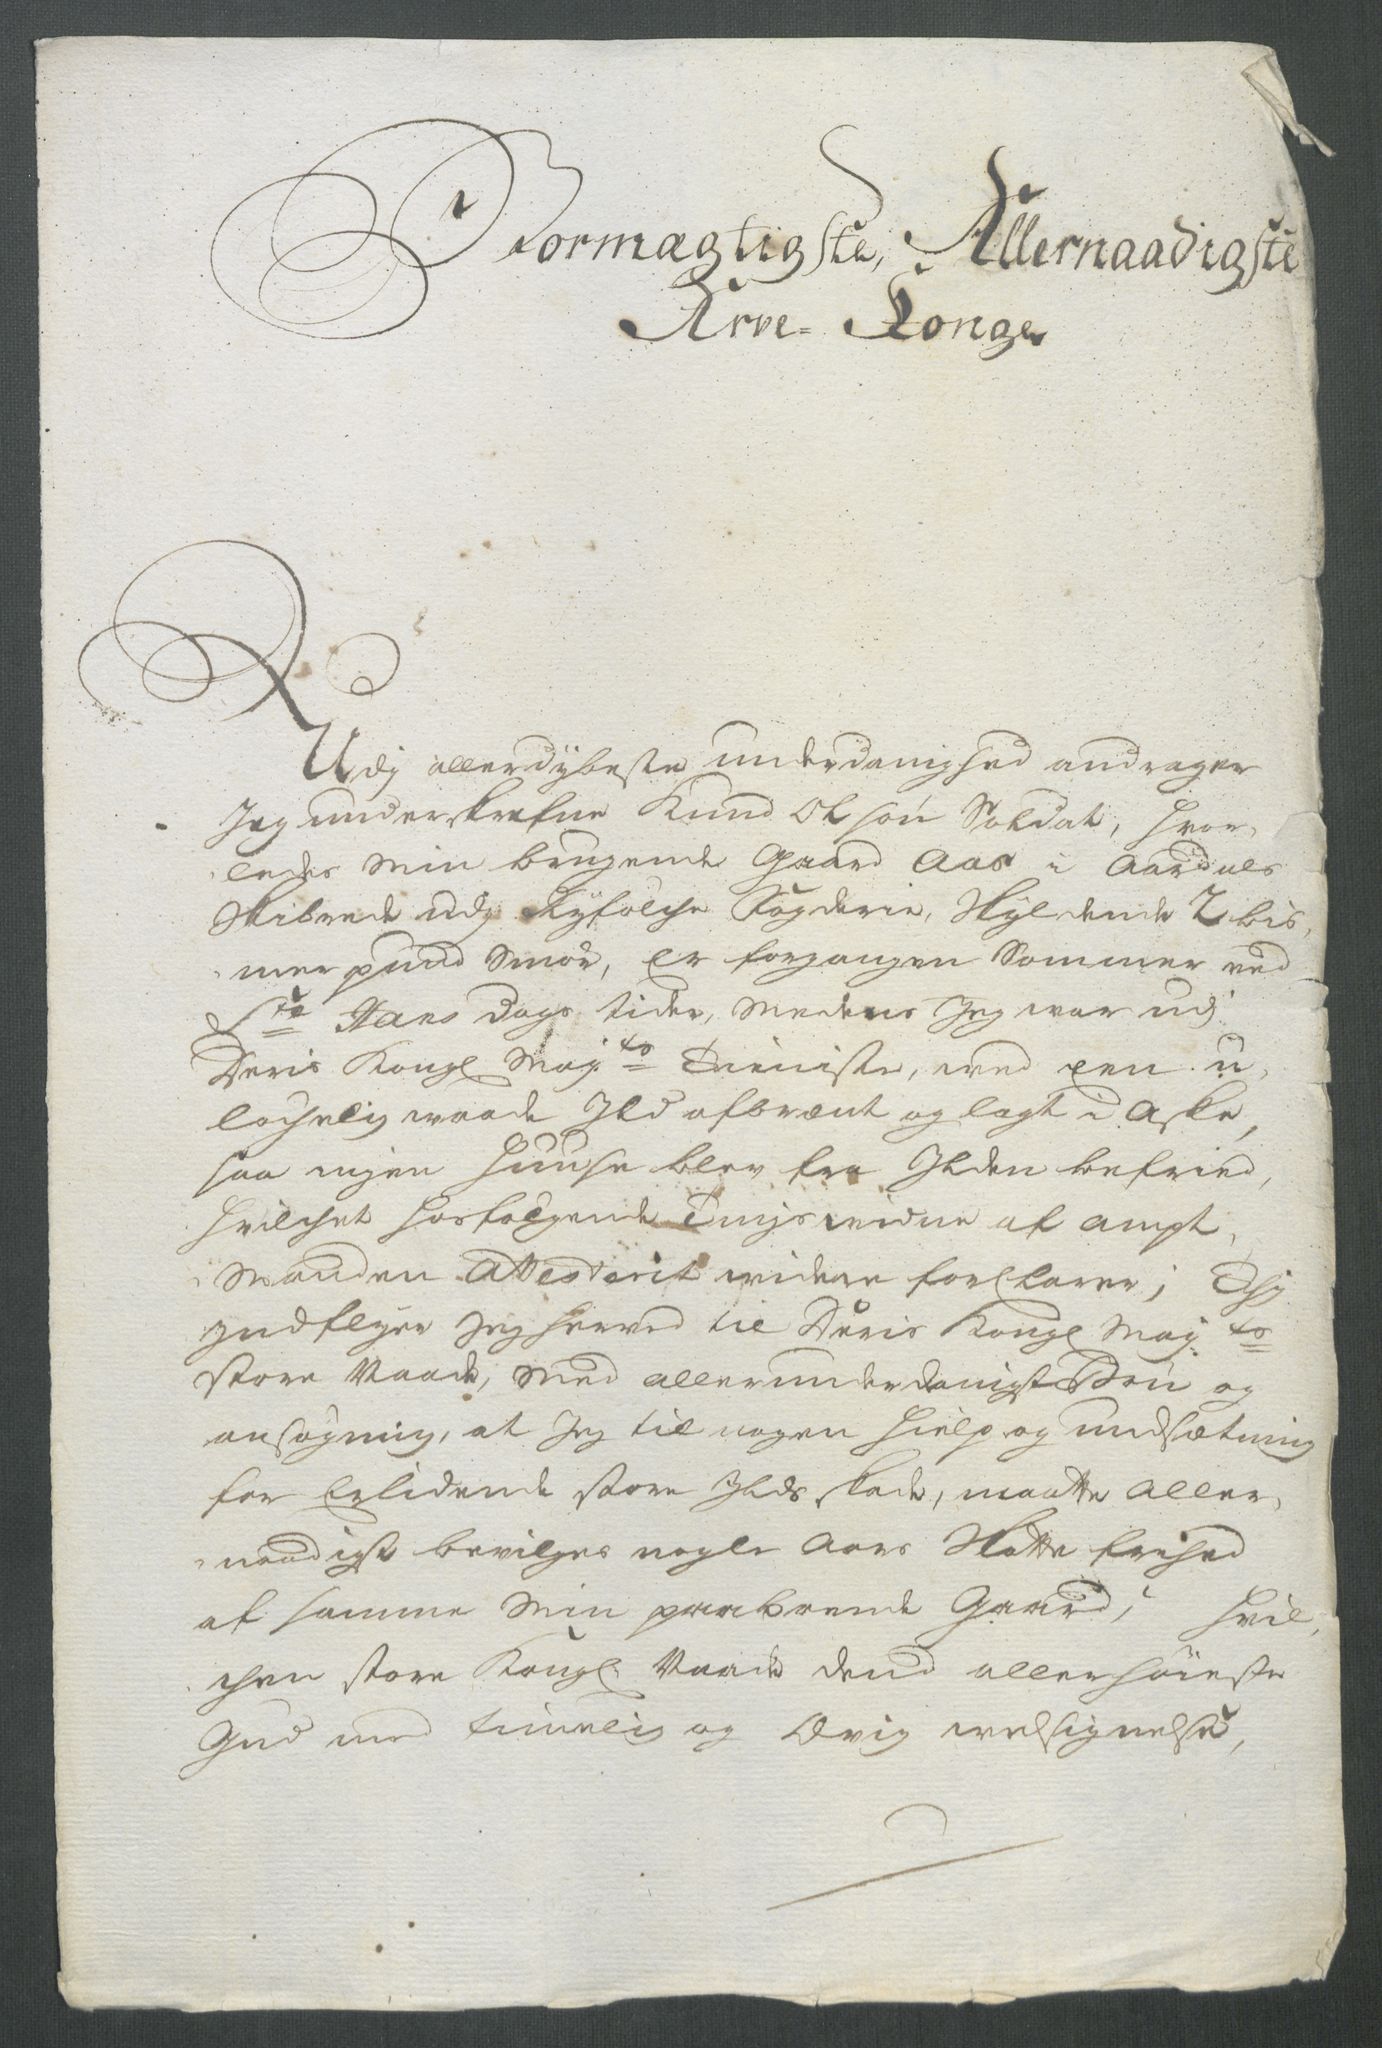 Stormægtigste, Allernaadigste
Arve-Konge
Udj allerdybeste underdanighed andrager
Jeg underskrefne Knud Olsøn Soldat, hvor,
ledes min brugende Gaard Aas i Aardals
Skibrede udj Ryfølche Fogderie, Skyldende 2 bis,
mer pund Smør, er forgangen Sommer ved
Ste Hans Dags tider, medens Jeg war udj
Deris Kongl May:ts Tieniste, ved een u,
løchelig vaade Ild afbrænt og lagt i Aske,
saa ingen Huuse blev fra Ilden befried,
hvilchet hosfølgende Tingsvidne af Ampt,
manden Attesterit videre forklarer; Thj
Indflyer Jeg herved til Deris Kongl May:ts
store Naade, med allerunderdanigst Bøn og
ansøgning, at Jeg til nogen hielp og undsætning
for Erlidende store Ilds skade, maatte Aller,
naadigst bevilges nogle Aars Skatte frihed
af samme min paaboende Gaard; hvil,
chen store Kongl: Naade dend allerhøieste
Gud med timelig og Ævig velsignelse,